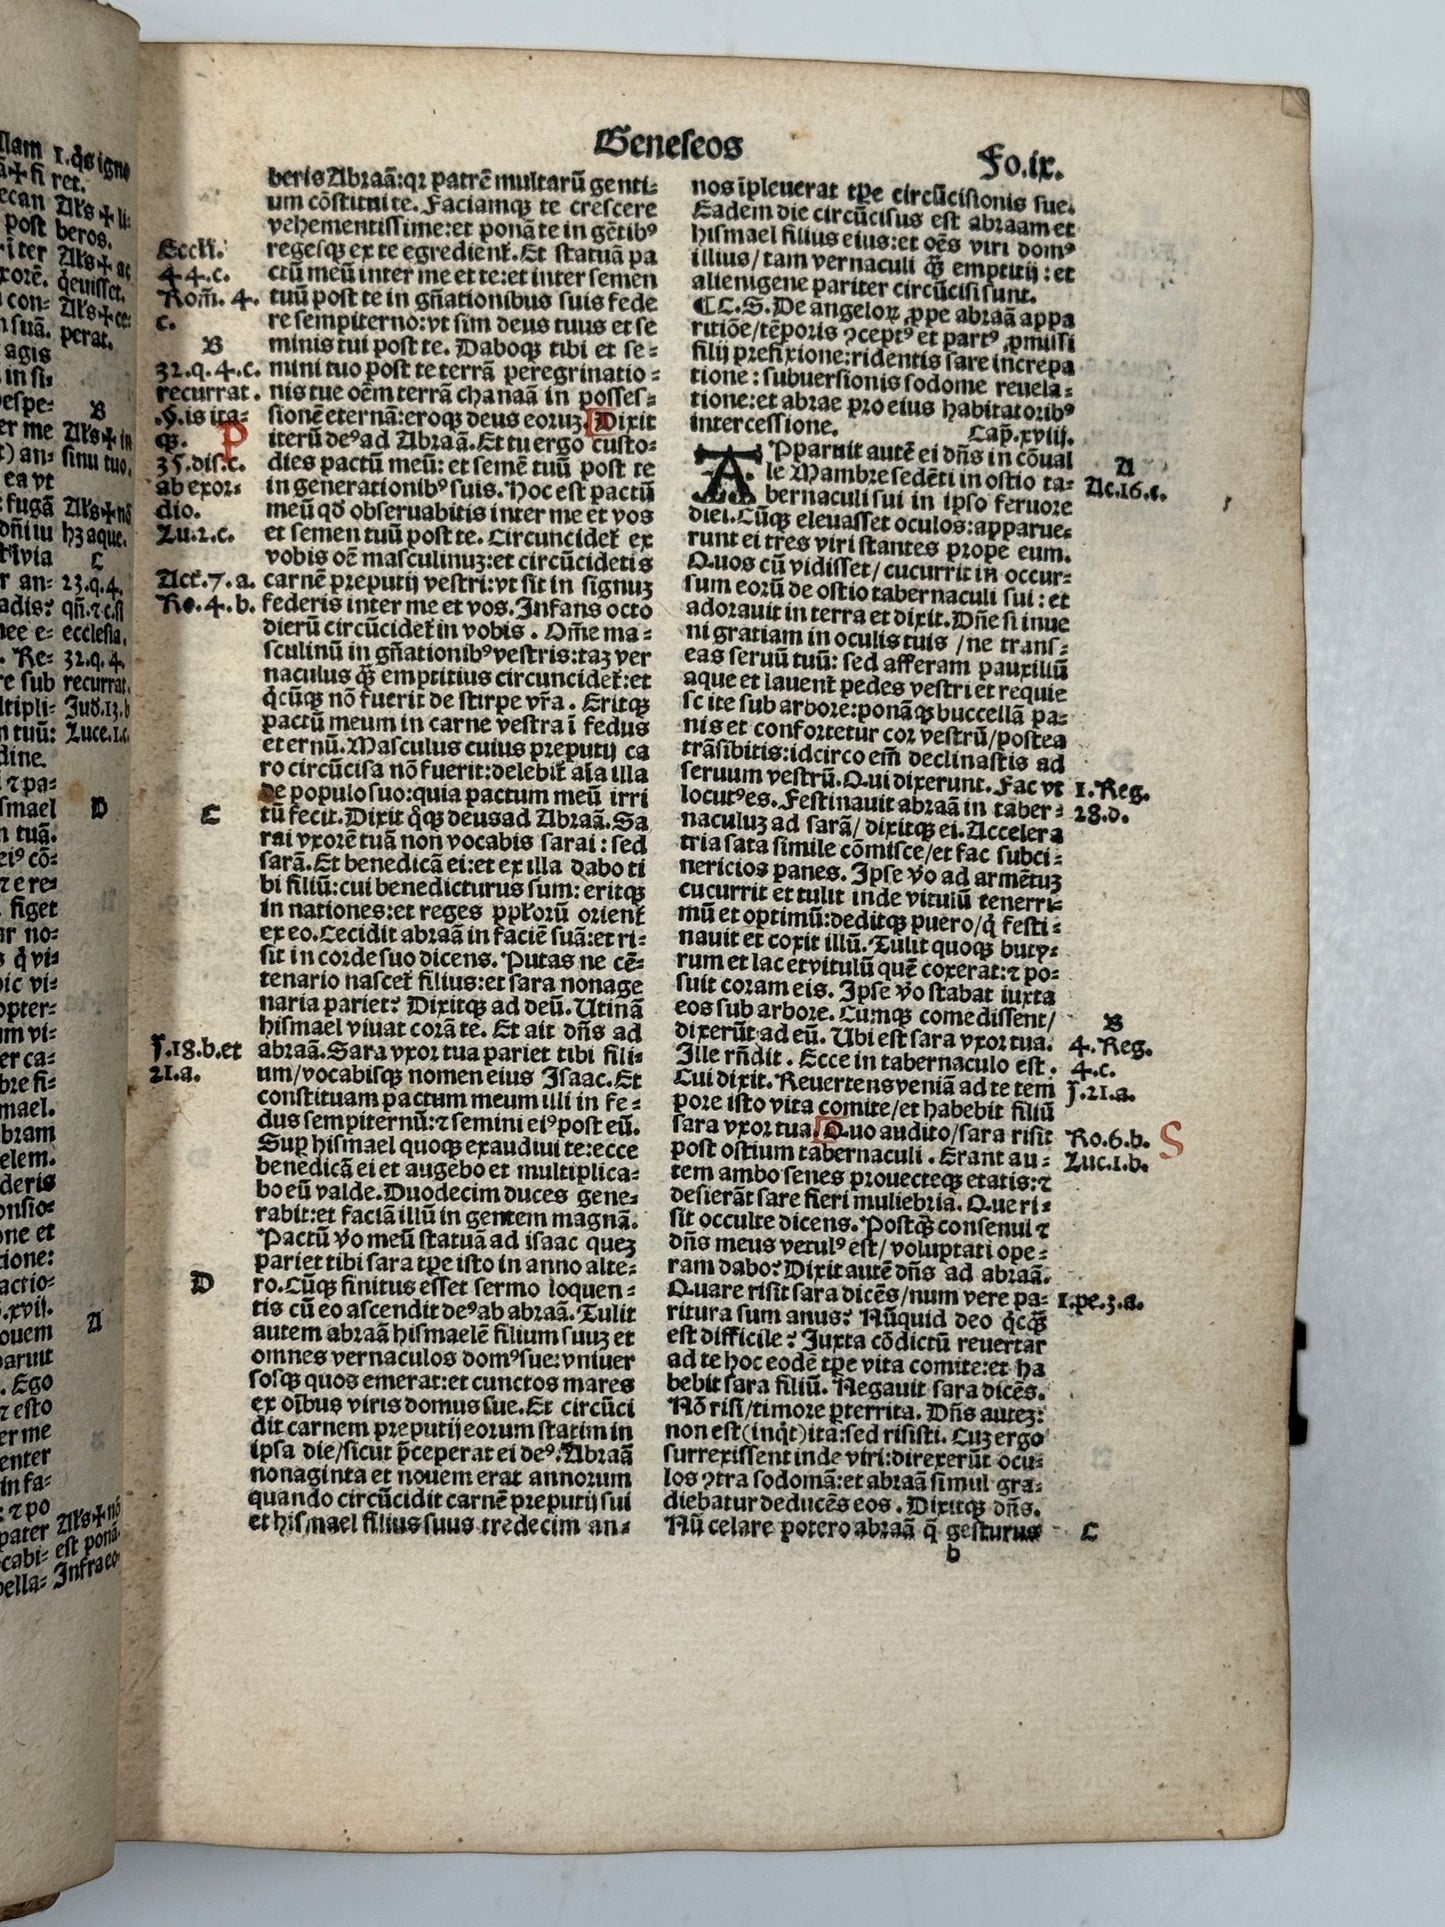 Geneseos
Fo.ix.
beris Abraã:qꝛ patrẽ multarũ genti⸗
um cõstitui te. Faciamqꝫ te crescere
vehementissime:et ponã te in gẽtibꝰ
regesqꝫ ex te egredient̃. Et statuã pa
ctũ meũ inter me et te:et inter semen
tuũ post te in gñationibus suis fede
re sempiterno:vt sim deus tuus et se
minis tui post te. Daboqꝫ tibi et se⸗
mini tuo post te terrã peregrinatio⸗
nis tue oẽm terrã chanaã in posses⸗
sionẽ eternã:eroqꝫ deus eoruꝫ. Dixit
iterũ deꝰ ad Abraã. Et tu ergo custo⸗
dies pactũ meũ: et semẽ tuũ post te
in generationibꝰ suis. Hoc est pactũ
meũ qd̃ obseruabitis inter me et vos
et semen tuũ post te. Circuncidet̃ ex
vobis oẽ masculinuꝫ:et circũcidetis
carnẽ preputij vestri:vt sit in signuꝫ
federis inter me et vos. Infans octo
dierũ circũcidet̃ in vobis. Om̃e ma⸗
sculinũ in gñationibꝰ vestris:taꝫ ver
naculus qꝫ̃ emptitius circuncidet̃:et
q̇cũqꝫ nõ fuerit de stirpe vr̃a. Eritqꝫ
pactũ meum in carne vestra ĩ fedus
eternũ. Masculus cuius preputij ca
ro circũcisa nõ fuerit:delebit̃ aĩa illa
de populo suo:quia pactum meũ irri
tũ fecit. Dixit q̊qꝫ deus ad Abraã. Sa
rai vxorẽ tuã non vocabis sarai: sed
sarã. Et benedicã ei:et ex illa dabo ti
bi filiũ:cui benedicturus sum: eritqꝫ
in nationes:et reges ppl̃orũ orient̃
ex eo. Cecidit abraã in faciẽ suã:et ri⸗
sit in corde suo dicens. Putas ne cẽ⸗
tenario nascet̃ filius:et sara nonage
naria pariet? Dixitqꝫ ad deũ. Utinã
hismael viuat corã te. Et ait dñs ad
abraã. Sara vxor tua pariet tibi fili⸗
um/vocabisqꝫ nomen eius Isaac. Et
constituam pactum meum illi in fe⸗
dus sempiternũ:⁊ semini eiꝰ post eũ.
Suꝑ hismael quoqꝫ exaudiui te:ecce
benedicã ei et augebo et multiplica⸗
bo eũ valde. Duodecim duces gene⸗
rabit:et faciã illũ in gentem magnã.
Pactũ ṽo meũ statuã ad isaac queꝫ
pariet tibi sara tꝑe isto in anno alte⸗
ro. Cũqꝫ finitus esset sermo loquen⸗
tis cũ eo ascendit deꝰ ab abraã. Tulit
autem abraã hismaelẽ filium suuꝫ et
omnes vernaculos domꝰ sue:vniuer
sosqꝫ quos emerat:et cunctos mares
ex oĩbus viris domus sue. Et circũci
dit carnem preputij eorum statim in
ipsa die/sicut p̃ceperat ei deꝰ. Abraã
nonaginta et nouem erat annorum
quando circũcidit carnẽ preputij sui
et hismael filius suus tredecim an⸗
Eccli.
44.c.
Rom̃. 4.
c.
B
32.q.4.c.
recurrat.
.§.is ita⸗
qꝫ.
P
35.dis.c.
ab exor⸗
dio.
Lu.2.c.
Act̃.7.a.
Ro.4.b.
C
J.18.b.et
21.a.
D
nos ĩpleuerat tꝑe circũcisionis sue.
Eadem die circũcisus est abraam et
hismael filius eius:et oẽs viri domꝰ
illius/tam vernaculi qꝫ̃ emptitij: et
alienigene pariter circũcisi sunt.
¶C.S. De angeloꝝ ꝓpe abraã appa
ritiõe/tẽporis ꝯceptꝰ et partꝰ ꝓmissi
filij prefixione:ridentis sare increpa
tione: subuersionis sodome reuela⸗
tione:et abrae pro eius habitatoribꝰ
intercessione. Cap̃.xviij.
APparuit autẽ ei dñs in cõual
le Mambre sedẽti in ostio ta⸗
bernaculi sui in ipso feruore
diei. Cũqꝫ eleuasset oculos:apparue⸗
runt ei tres viri stantes prope eum.
Quos cũ vidisset/ cucurrit in occur⸗
sum eorũ de ostio tabernaculi sui: et
adorauit in terra et dixit. Dñe si inue
ni gratiam in oculis tuis /ne trans⸗
eas seruũ tuũ: sed afferam pauxillũ
aque et lauent̃ pedes vestri et requie
scite sub arbore:ponãqꝫ buccellã pa⸗
nis et confortetur cor vestrũ/postea
trãsibitis:idcirco em̃ declinastis ad
seruum vestrũ. Qui dixerunt. Fac vt
locutꝰ es. Festinauit abraã in taber⸗
naculuꝫ ad sarã/ dixitqꝫ ei. Accelera
tria sata simile cõmisce/et fac subci⸗
nericios panes. Ipse ṽo ad armẽtuꝫ
cucurrit et tulit inde vitulũ tenerri⸗
mũ et optimũ:deditqꝫ puero/q̇ festi⸗
nauit et coxit illũ. Tulit quoqꝫ buty⸗
rum et lac et vitulũ quẽ coxerat:⁊ po⸗
suit coram eis. Ipse ṽo stabat iuxta
eos sub arbore. Cumqꝫ comedissent/
dixerũt ad eũ. Ubi est sara vxor tua.
Ille rñdit. Ecce in tabernaculo est.
Cui dixit. Reuertens veniã ad te tem
pore isto vita comite/et habebit filiũ
sara vxor tua. Quo audito/sara risit
post ostium tabernaculi. Erant au⸗
tem ambo senes prouecteqꝫ etatis:⁊
desierãt sare fieri muliebria. Que ri⸗
sit occulte dicens. Postqꝫ̃ consenui ⁊
dñs meus vetulꝰ est/ voluptati ope⸗
ram dabo? Dixit autẽ dñs ad abraã.
Quare risit sara dicẽs/num vere pa⸗
ritura sum anus? Nũquid deo q̇cqꝫ̃
est difficile? Juxta cõdictũ reuertar
ad te hoc eodẽ tꝑe vita comite:et ha
bebit sara filiũ. Negauit sara dicẽs.
Nõ risi/timore ꝑterrita. Dñs auteꝫ:
non est(inq̇t)ita:sed risisti. Cuꝫ ergo
surrexissent inde viri:direxerũt ocu⸗
los ꝯtra sodomã:et abraã simul gra⸗
diebatur deducẽs eos. Dixitqꝫ dñs.
Nũ celare potero abraã q̃ gesturus
b
A
Ac.16.c.
1.Reg.
28.d.
B
4.Reg.
4.c.
J.21.a.
Ro.6.b.
S
Luc.1.b.
1.pe.3.a.
C